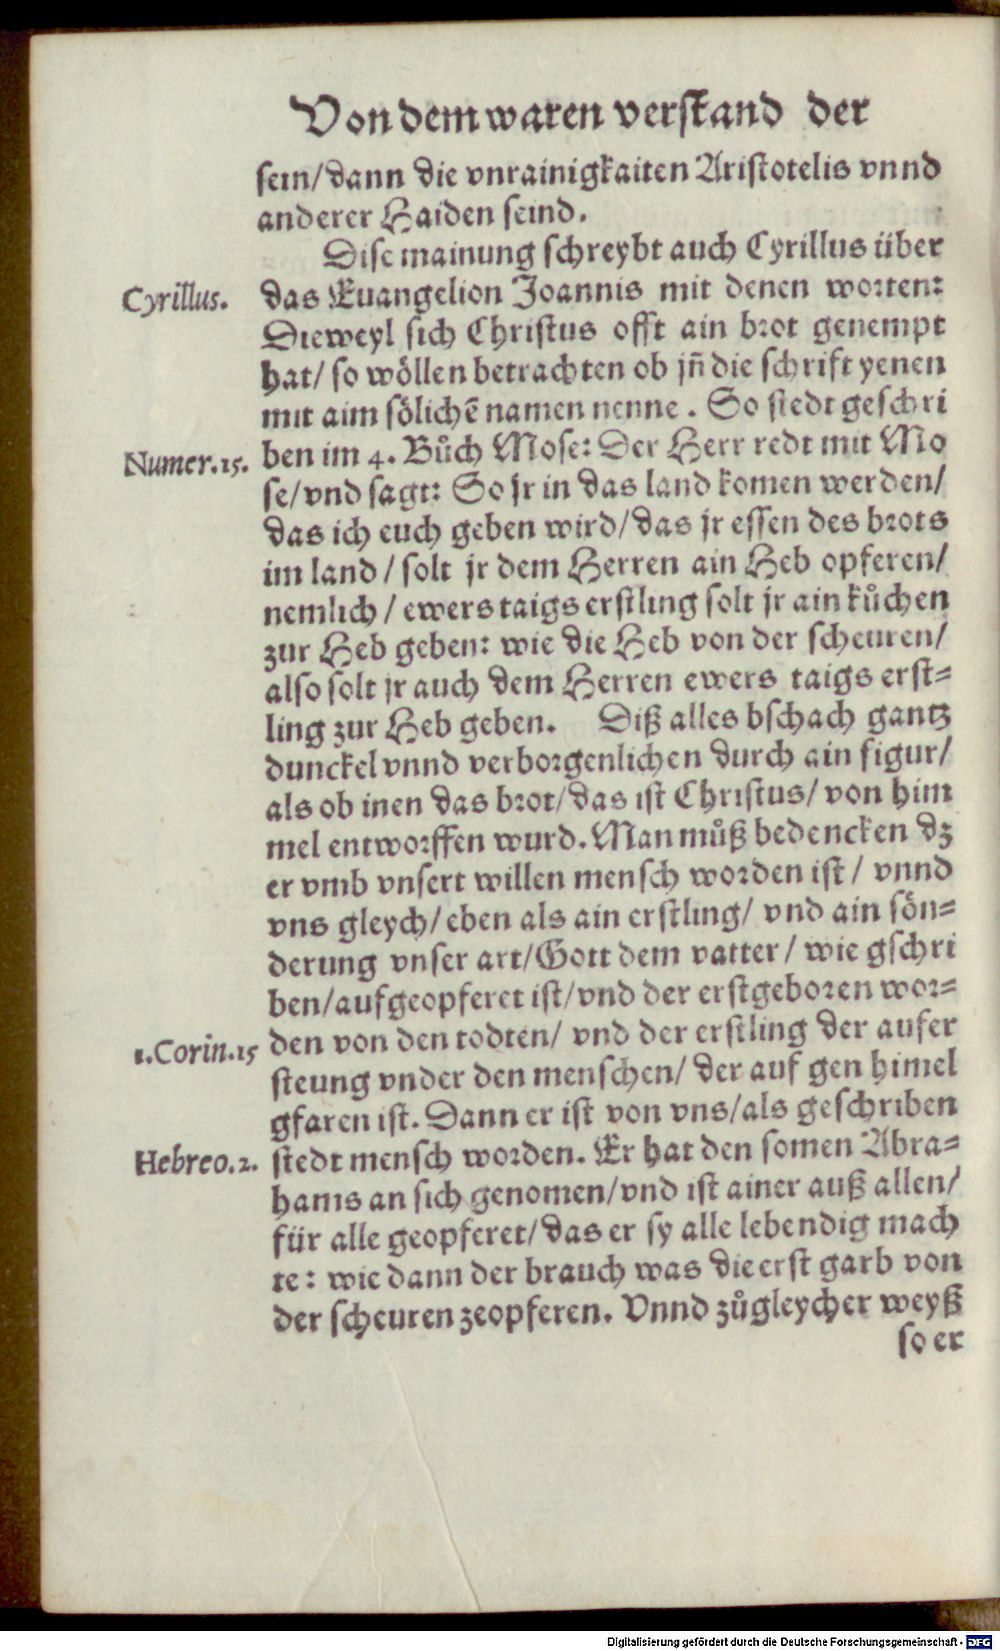 Von dem waren verstand der
sein/ dann die vnrainigkaiten Aristotelis vnnd
anderer Haiden seind.
Dise mainung schreybt auch Cyrillus über
Cyrillus. das Euangelion Joannis mit denen worten:
Dieweyl sich Christus offt ain brot genempt
hat/ so wöllen betrachten ob jn̄ die schrift yenen
mit aim sölichē namen nenne. So stedt geschri
Numer.15. ben im 4. Bůch Mose: Der Herr redt mit Mo
se/ vnd sagt: So jr in das land komen werden/
das ich euch geben wird/ das jr essen des brots
im land/ solt jr dem Herren ain Heb opferen/
nemlich/ ewers taigs erstling solt jr ain kůchen
zur Heb geben: wie die Heb von der scheuren/
also solt jr auch dem Herren ewers taigs erst-
ling zur Heb geben. Diß alles bschach gantz
dunckel vnnd verborgenlichen durch ain figur/
als ob inen das brot/ das ist Christus/ von him
mel entworffen wurd. Man můß bedencken dz
er vmb vnsert willen mensch worden ist/ vnnd
vns gleych/ eben als ain erstling/ vnd ain sön-
derung vnser art/ Gott dem vatter/ wie gschri
ben/ aufgeopferet ist/ vnd der erstgeboren wor-
1.Corin.15 den von den todten/ vnd der erstling der aufer
steung vnder den menschen/ der auf gen himel
gfaren ist. Dann er ist von vns/ als geschriben
Hebreo.2. stedt mensch worden. Er hat den somen Abra-
hams an sich genomen/ vnd ist ainer auß allen/
für alle geopferet/ das er sy alle lebendig mach
te: wie dann der brauch was die erst garb von
der scheuren zeopferen. Vnnd zůgleycher weyß
so er
Digitalisierung gefördert durch die Deutsche Forschungsgemeinschaft - DFG